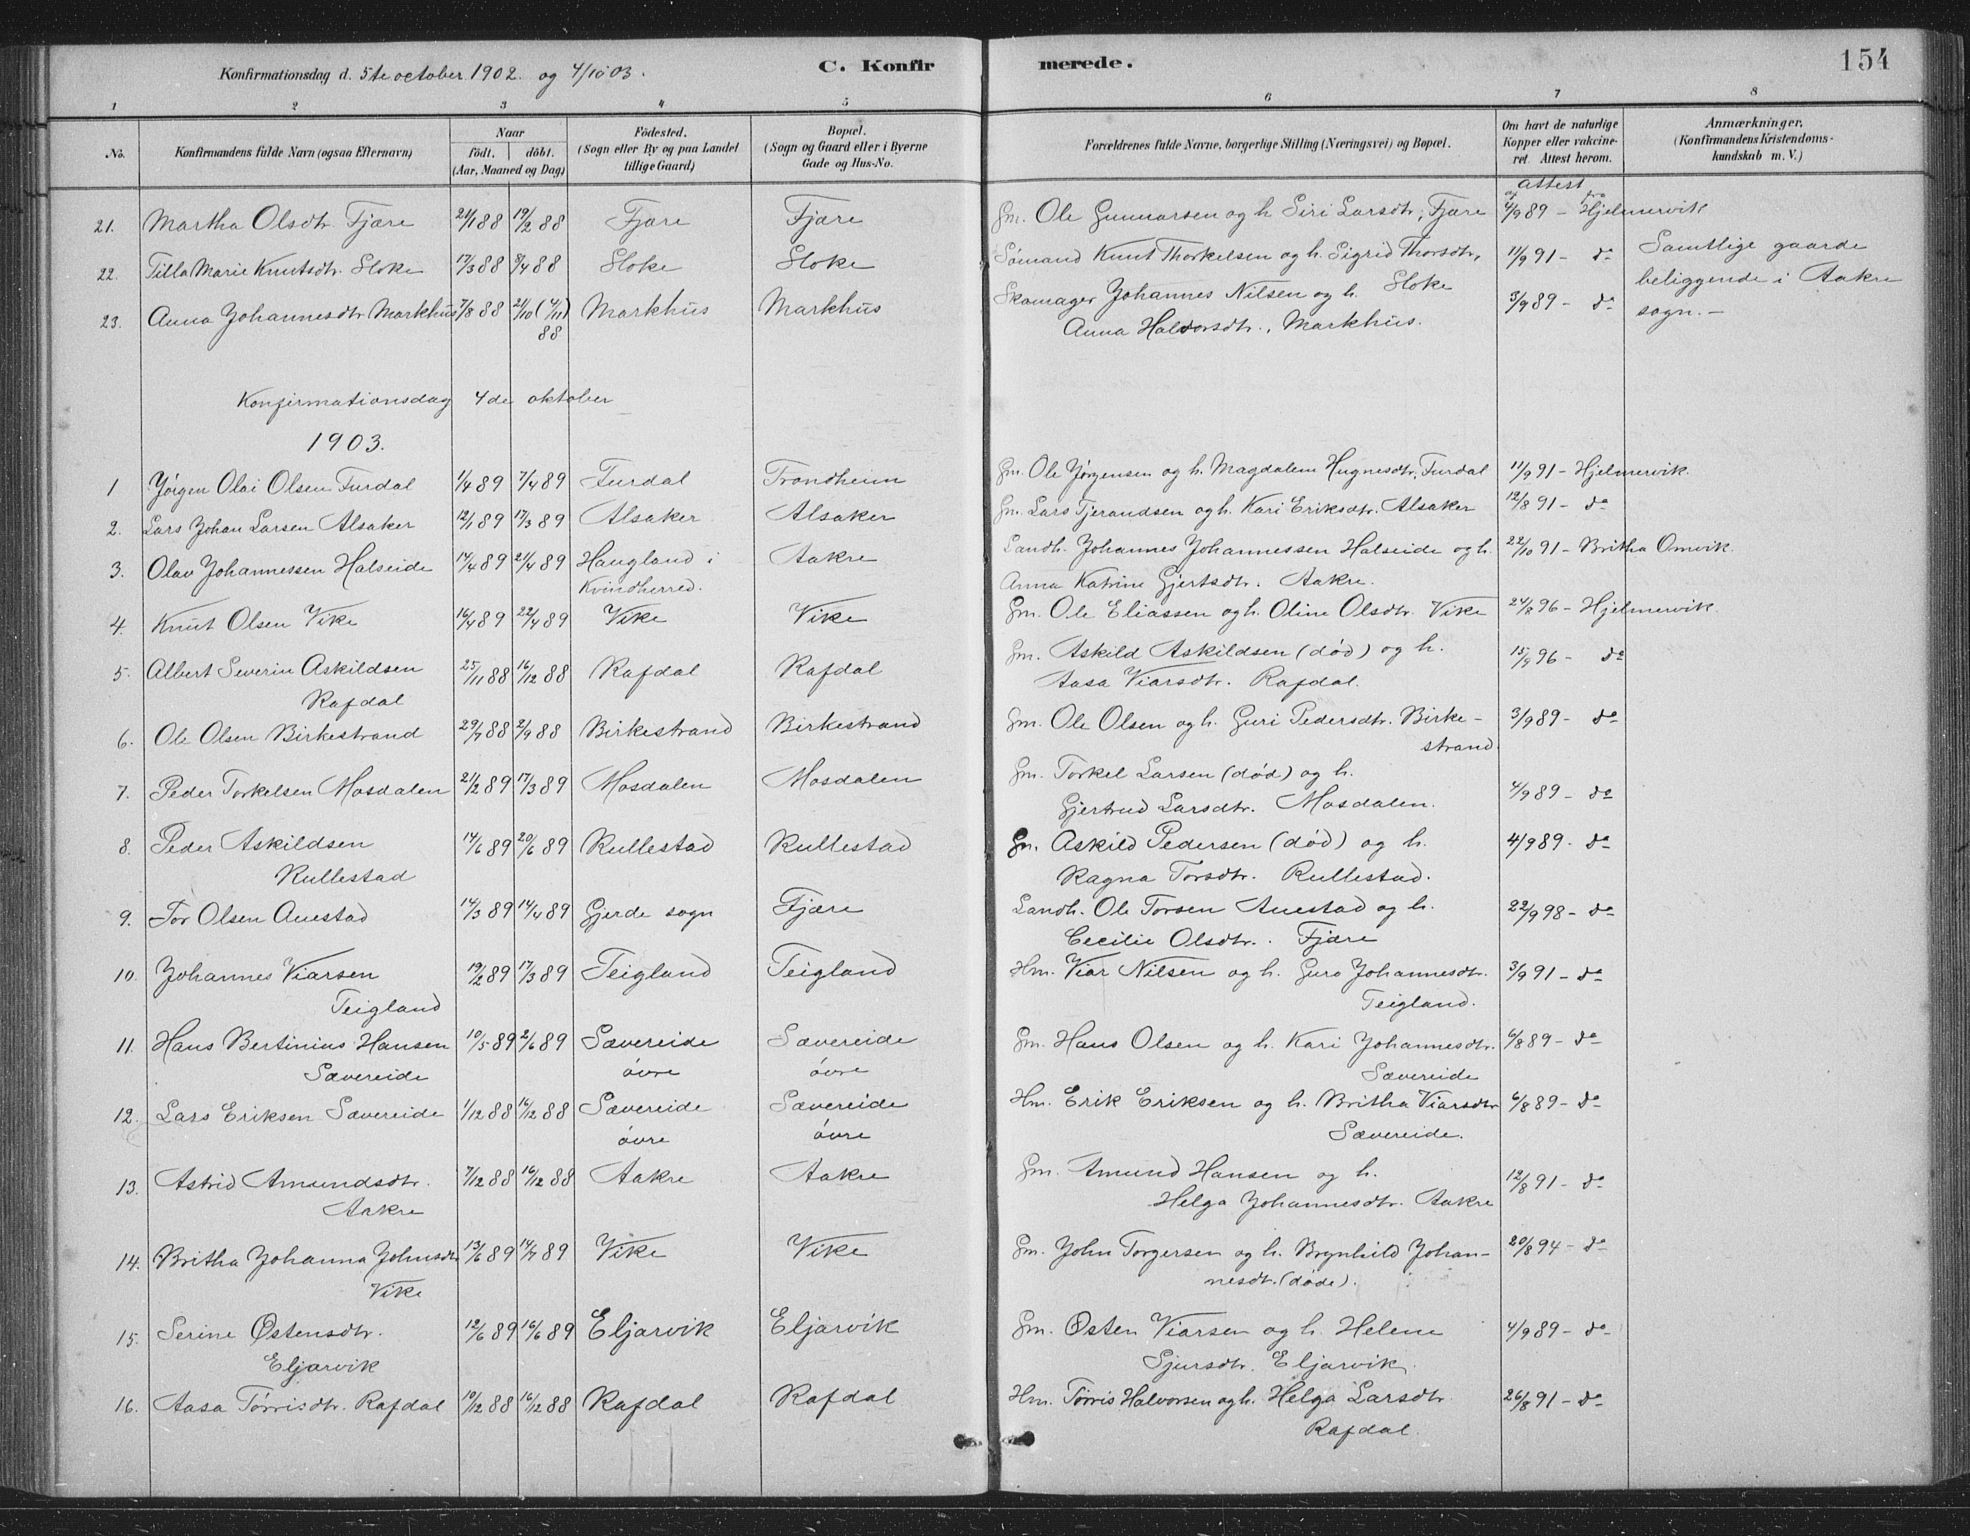 Konfirmationsdag d. 5te october 1902. og 4/10 03.
C. Konfirmerede.
154
1 2 3 4 5 6 7 8
No.
Konfirmandens fulde Navn (ogsaa Efternavn)
Naar
födt. döbt.
(Aar, Maaned og Dag)
Födested.
(Sogn eller By og paa Landet
tillige Gaard)
Bopæl.
(Sogn og Gaard eller i Byerne
Gade og Hus-No.
Forældrenes fulde Navne, borgerlige Stilling (Næringsvei) og Bopæl.
Om havt de naturlige
Kopper eller vakcine-
ret. Attest herom.
Anmærkninger.
(Konfirmandens Kristendoms-
kundskab m. V.)
attest
21. Martha Olsdtr Fjære 21/1 88 19/2 88 Fjære Fjære Gm. Ole Gunnarsen og h. Siri Larsdtr, Fjære 4/9 89 - Hjelmervik
22. Tilla Marie Knutsdtr. Sloke 17/3 88 8/4 88 Sloke Sloke Sømand Knut Thorkelsen og h. Sigrid Thorsdtr, Sloke 11/9 91 - do
Samtlige gaarde
beliggende i Aakre
sogn. -
23. Anna Johannesdtr Markhus 7/8 88 21/10 (4/11) 88 Markhus Markhus Skomager Johannes Nilsen og h.
Anna Haldorsdtr., Markhus. 3/9 89 - do
Konfirmationsdag 4de oktober
1903.
1 Jörgen Olai Olsen Furdal 1/4 89 7/4 89 Furdal Trondheim Gm. Ole Jørgensen og h. Magdalena Hugnesdtr. Furdal 11/9 91 - Hjelmervik.
2. Lars Johan Larsen Alsaker 12/1 89 17/3 89 Alsaker Alsaker Gm. Lars Tjerandsen og h. Kari Eriksdtr. Alsaker 12/8 91 - do
3. Olav Johannessen Halseide 14/4 89 21/4 89 Haugland i
Kvindherred. Aakre Landh. Johannes Johannessen Halseide og h.
Anna Katrine Gjertsdtr. Aakre. 22/10 91 - Britha Omvik.
4. Knut Olsen Vike 16/4 89 22/4 89 Vike Vike Gm. Ole Eliassen og h. Oline Olsdtr. Vike 24/8 96 - Hjelmervik.
5. Albert Severin Askildsen
Rafdal 25/11 88 16/12 88 Rafdal Rafdal Gm. Askild Askildsen (död) og h.
Aasa Viarsdtr. Rafdal. 15/9 96 - do
6. Ole Olsen Birkestrand 29/7 88 2/9 88 Birkestrand Birkestrand Gm. Ole Olsen og h. Guri Pedersdtr. Birke-
strand. 3/9 89 - do
7. Peder Torkelsen Mosdalen 21/2 89 17/3 89 Mosdalen Mosdalen Gm. Torkel Larsen (död) og h.
Gjertrud Larsdtr. Mosdalen. 4/9 89 - do
8. Peder Askildsen
Rullestad 14/6 89 20/6 89 Rullestad Rullestad Gm. Askild Pedersen (död) og h.
Ragna Torsdtr. Rullestad. 4/9 89 - do
9. Tor Olsen Auestad 14/3 89 14/4 89 Gjerde sogn Fjære Landh. Ole Torsen Auestad og h.
Cecilie Olsdtr. Fjære 22/9 98 - do
10. Johannes Viarsen
Teigland 19/2 89 17/3 89 Teigland Teigland Hm. Viar Nilsen og h. Guro Johannesdtr.
Teigland. 3/9 91 - do
11. Hans Bertinius Hansen
Sævereide 10/5 89 2/6 89 Sævereide
övre Sævereide
övre Gm. Hans Olsen og h. Kari Johannesdtr.
Sævereide 6/8 89 - do
12. Lars Eriksen Sævereide 1/12 88 16/12 88 Sævereide
övre Sævereide
övre Hm. Erik Eriksen og h. Britha Viarsdtr
Sævereide. 6/8 89 - do
13. Astrid Amundsdtr.
Aakre 7/12 88 16/12 88 Aakre Aakre Gm. Amund Hansen og h.
Helga Johannesdtr. Aakre 12/8 91 - do
14. Britha Johanna Johnsdtr
Vike 13/6 89 14/7 89 Vike Vike Gm. John Torgersen og h. Brynhild Johan-
nesdtr. (döde). 20/8 94 - do
15. Serine Østensdtr.
Eljarvik 12/6 89 16/6 89 Eljarvik Eljarvik Gm. Østen Viarsen og h. Helene
Sjursdtr. Eljarvik. 4/9 89 - do
16. Aasa Törrisdtr. Rafdal 10/12 88 16/12 88 Rafdal Rafdal Hm. Törris Halvorsen og h. Helga Larsdtr
Rafdal. 26/8 91 - do